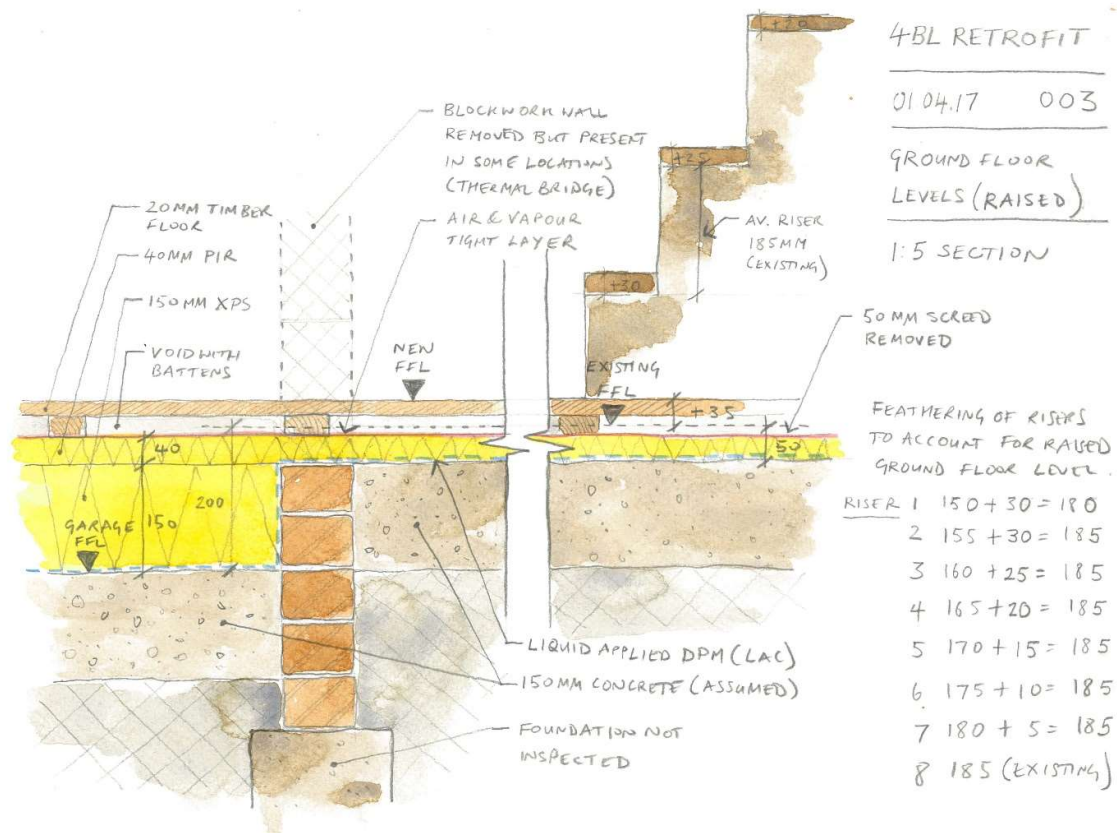 4BL RETROFIT
01 04.17 003
GROUND FLOOR
LEVELS (RAISED)
1:5 SECTION
BLOCKWORK WALL
REMOVED BUT PRESENT
IN SOME LOCATIONS
(THERMAL BRIDGE)
AIR & VAPOUR
TIGHT LAYER
20MM TIMBER
FLOOR
40MM PIR
150MM XPS
VOID WITH
BATTENS
NEW
FFL
EXISTING
FFL
+20
+25
+30
AV. RISER
185MM
(EXISTING)
50MM SCREED
REMOVED
+35
50
40
200
150
GARAGE
FFL
LIQUID APPLIED DPM (LAC)
150MM CONCRETE (ASSUMED)
FOUNDATION NOT
INSPECTED
FEATHERING OF RISERS
TO ACCOUNT FOR RAISED
GROUND FLOOR LEVEL.
RISER 1 150 + 30 = 180
2 155 + 30 = 185
3 160 + 25 = 185
4 165 + 20 = 185
5 170 + 15 = 185
6 175 + 10 = 185
7 180 + 5 = 185
8 185 (EXISTING)